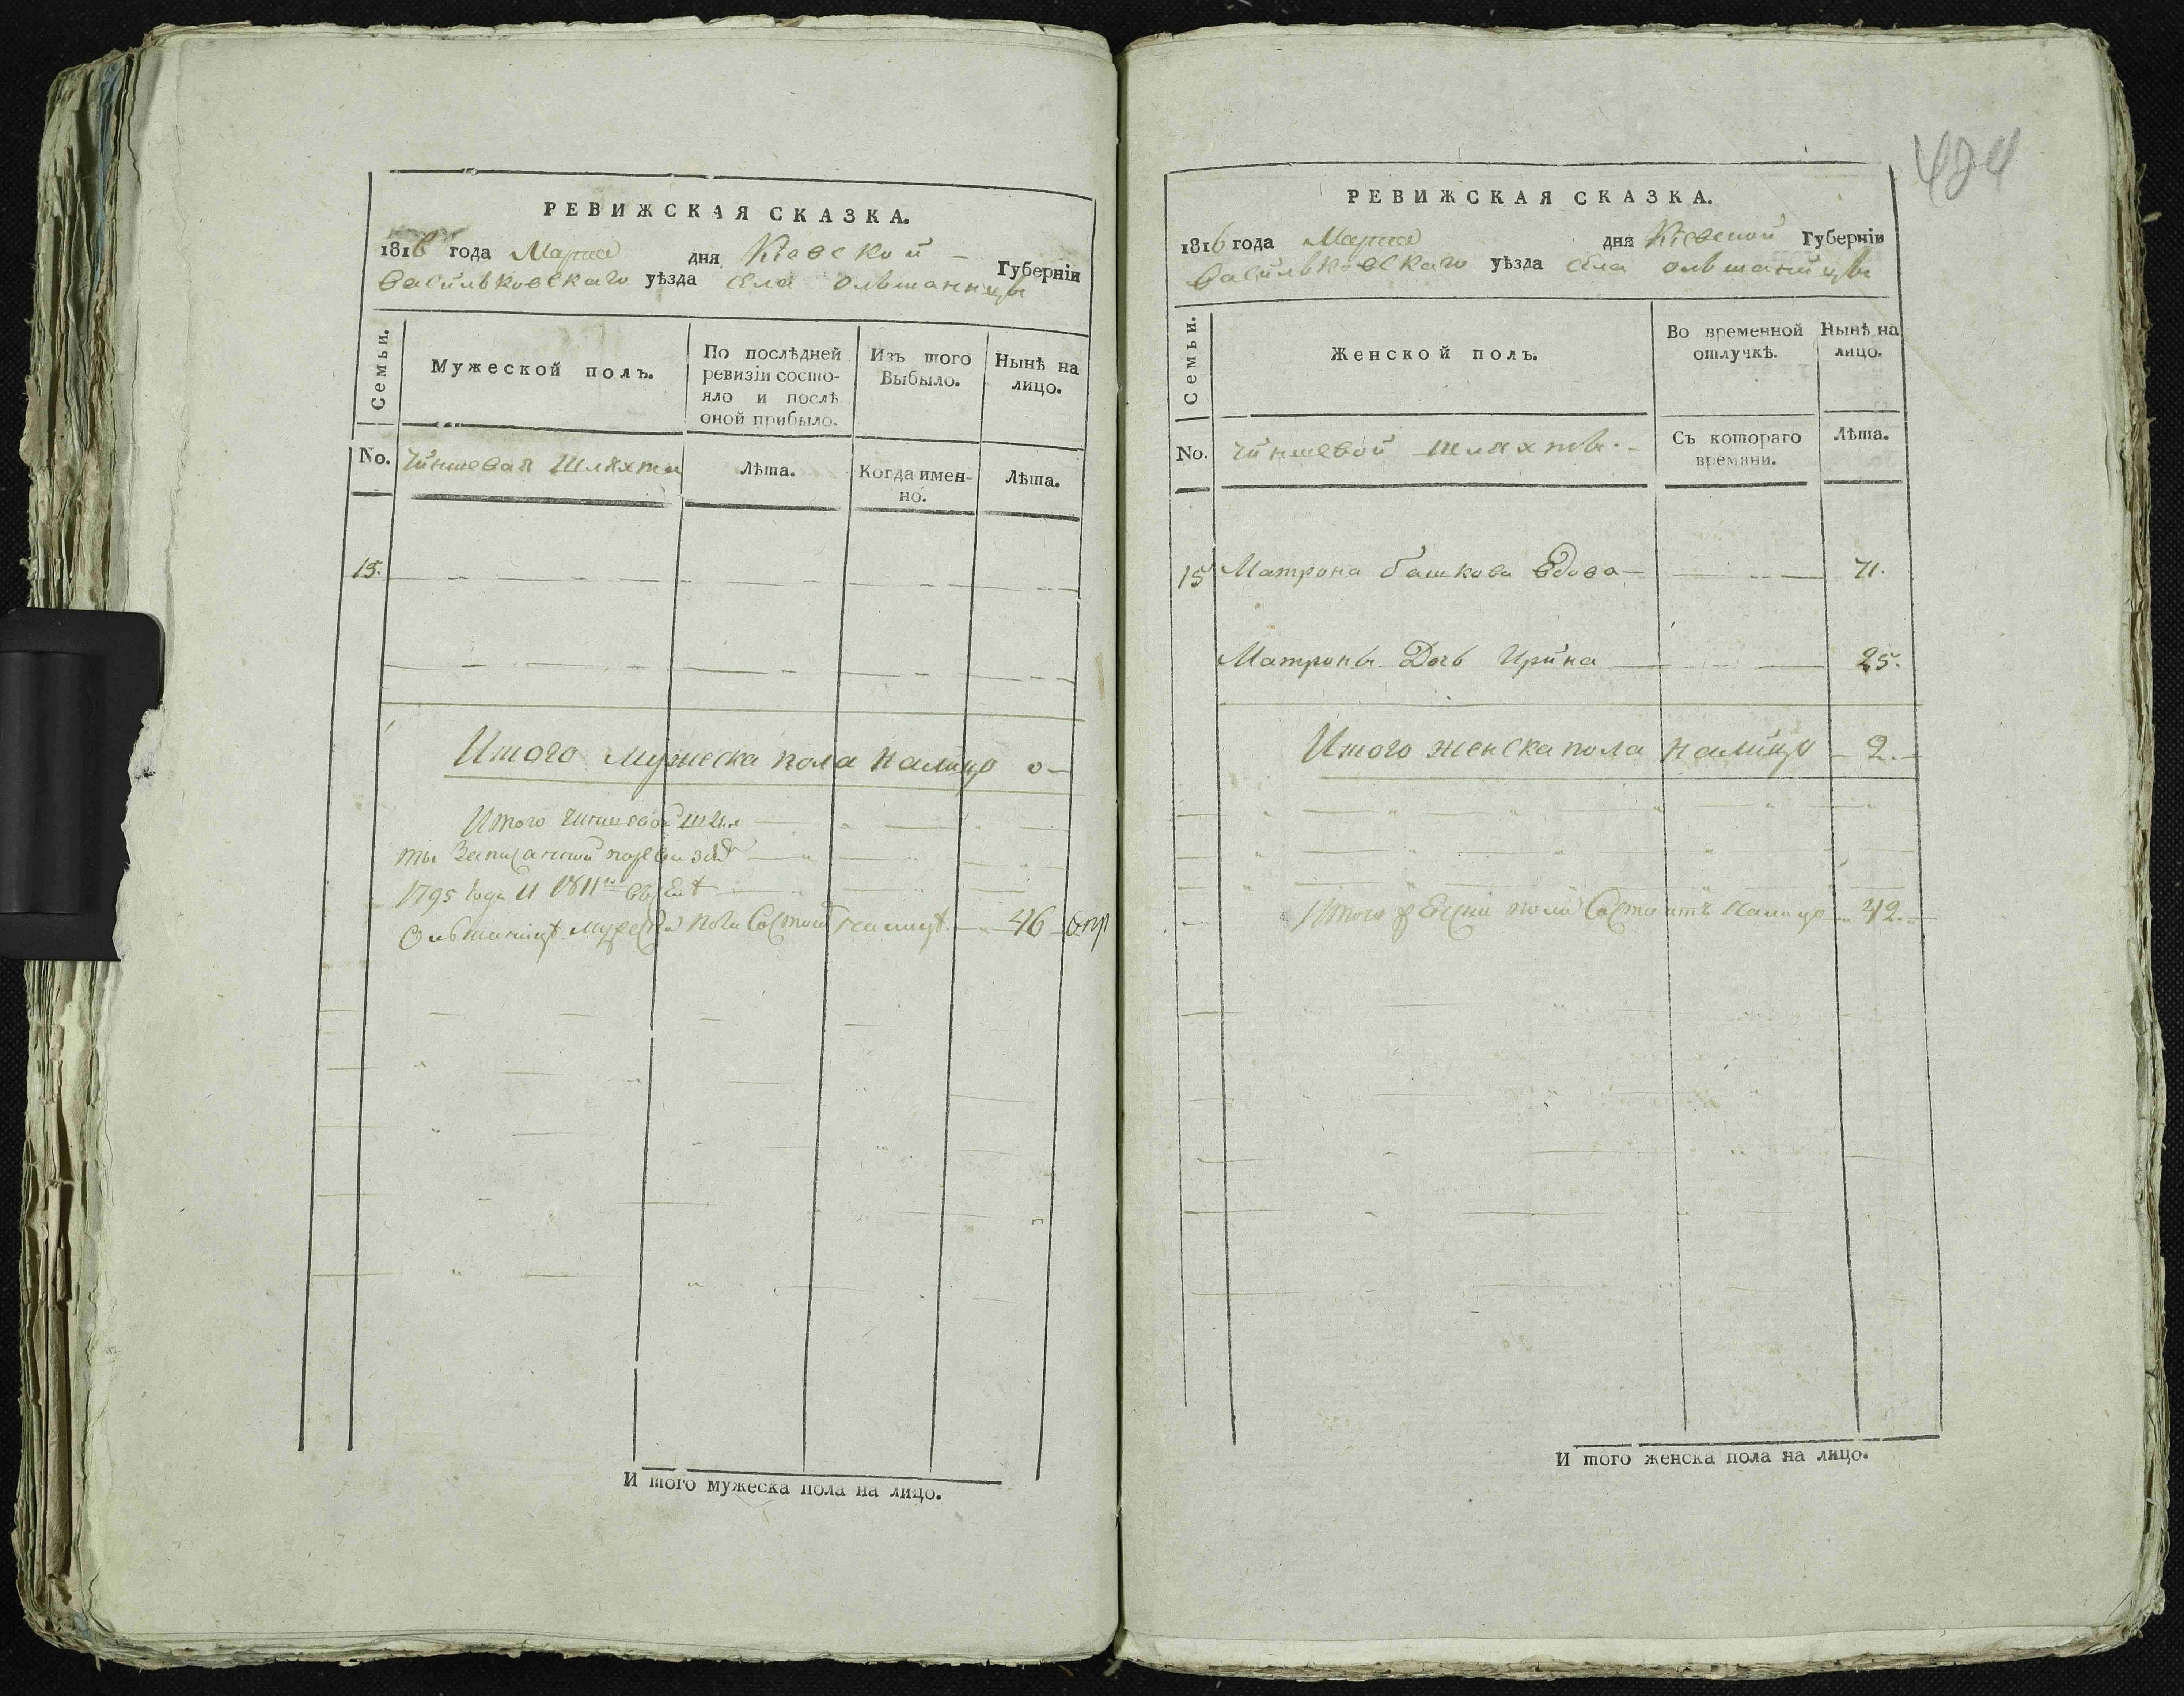 РЕВИЖСКАЯ СКАЗКА.
1816 года Марта дня Кіевской Губерніи
Васильковскаго уѣзда села Ольшанницы
Семьи.
Мужеской полъ.
По послѣдней ревизіи состояло и послѣ оной прибыло.
Изъ того Выбыло.
Нынѣ на лицо.
No.
Чиншевая Шляхта
Лѣта.
Когда именно.
Лѣта.
15.
Итого мужеска пола налицо 0
Итого Чиншевой Шлях
ты Записанной по ревизіи
1795 года и 1811 въ селѣ
Ольшаницѣ мужеска пола состоитъ налицо 46
И того мужеска пола на лицо.
424
РЕВИЖСКАЯ СКАЗКА.
1816 года Марта дня Кіевской Губерніи
Васильковскаго уѣзда села Ольшаницы
Семьи.
Женской полъ.
Во временной отлучкѣ.
Нынѣ на лицо.
No.
Чиншевой шляхты
Съ котораго времяни.
Лѣта.
15 Матрона башкова вдова 71.
Матроны Дочь Ирина 25.
Итого женска пола налицо 2.
Итого пола Состоитъ налицо 42.
И того женска пола на лицо.